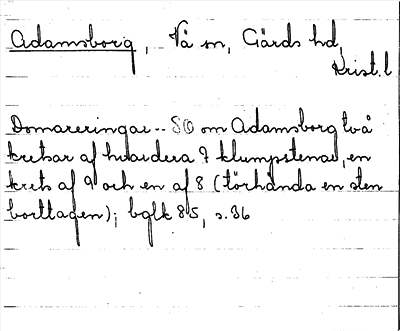 Adamsborg, Vå sn, Gärds hd,
Krist. l
Domareringar -- SO om Adamsborg två
kretsar af hvardera 7 klumpstenar, en
krets af 9 och en af 8 (törhända en sten
borttagen); bglk 85, s. 36